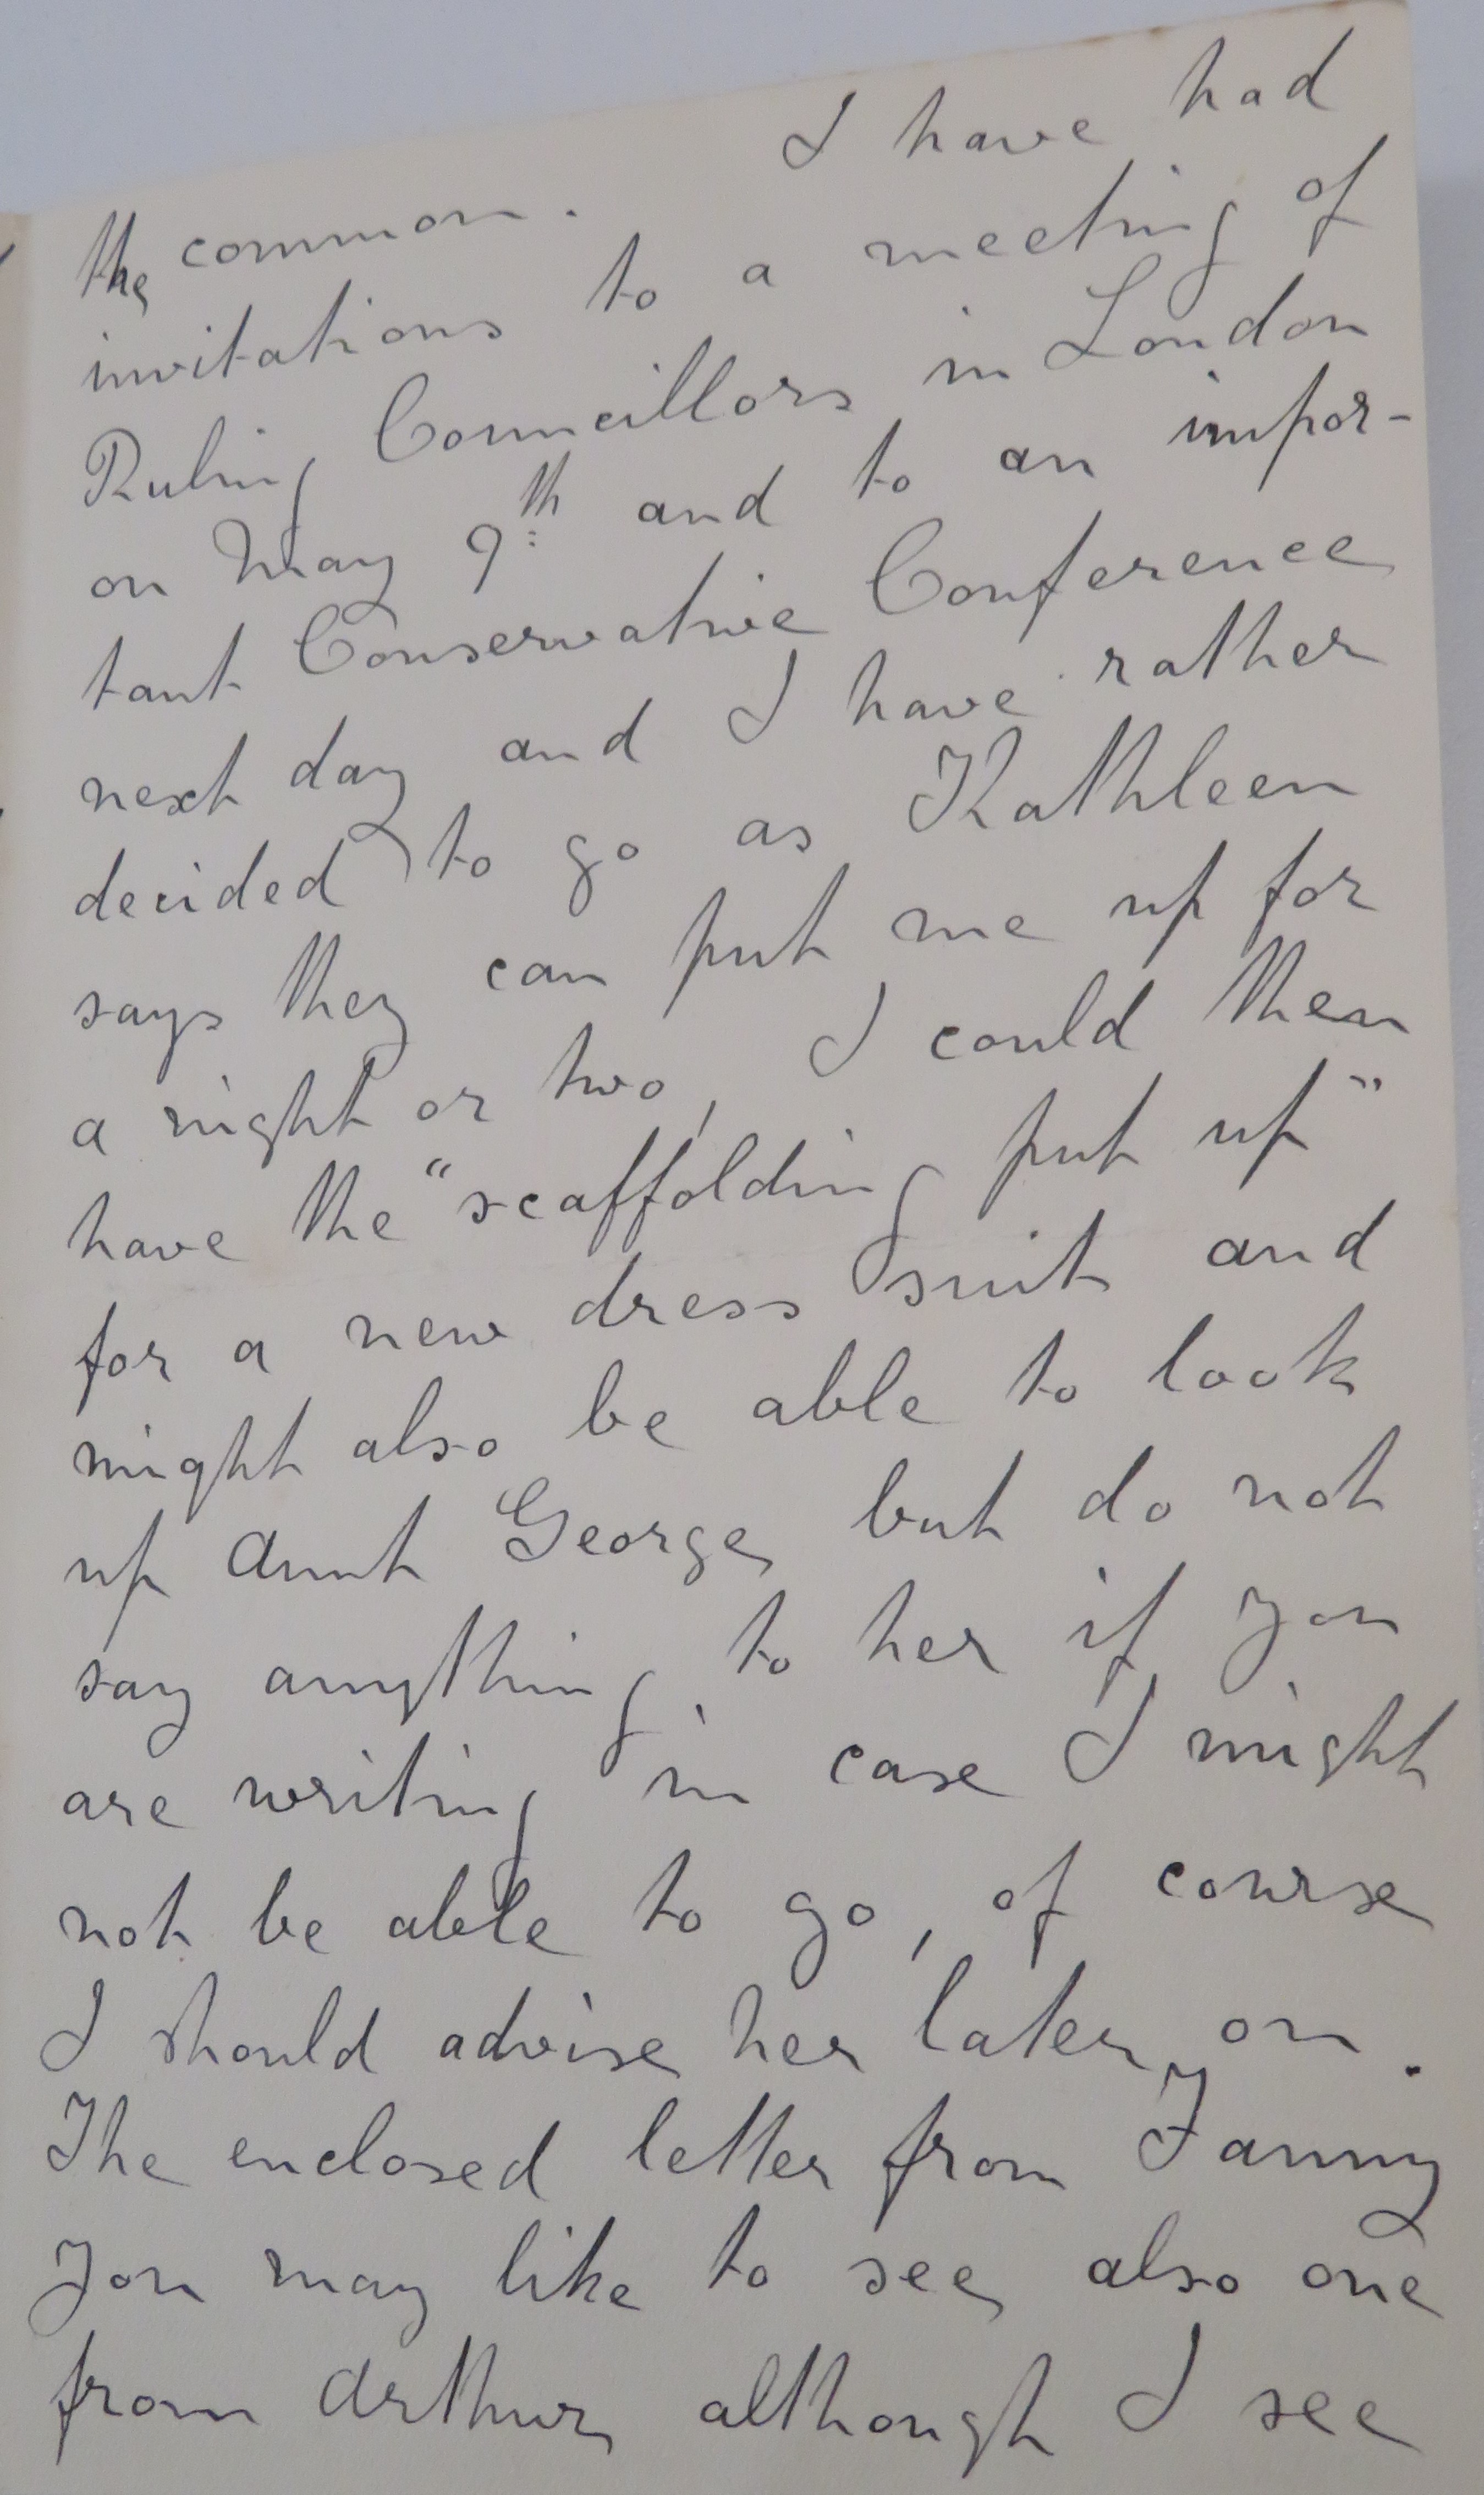 the common. I have had
invitations to a meeting of
Ruling Councillors in London
on May 9th and to an impor-
tant Conservative Conference
next day and I have rather
decided to go as Kathleen
says they can put me up for
a night or two, I could then
have the "scaffolding put up"
for a new dress suit and
might also be able to look
up Aunt George, but do not
say anything to her if you
are writing in case I might
not be able to go, of course
I should advise her later on.
The enclosed letter from Fanny
you may like to see, also one
from Arthur, although I see